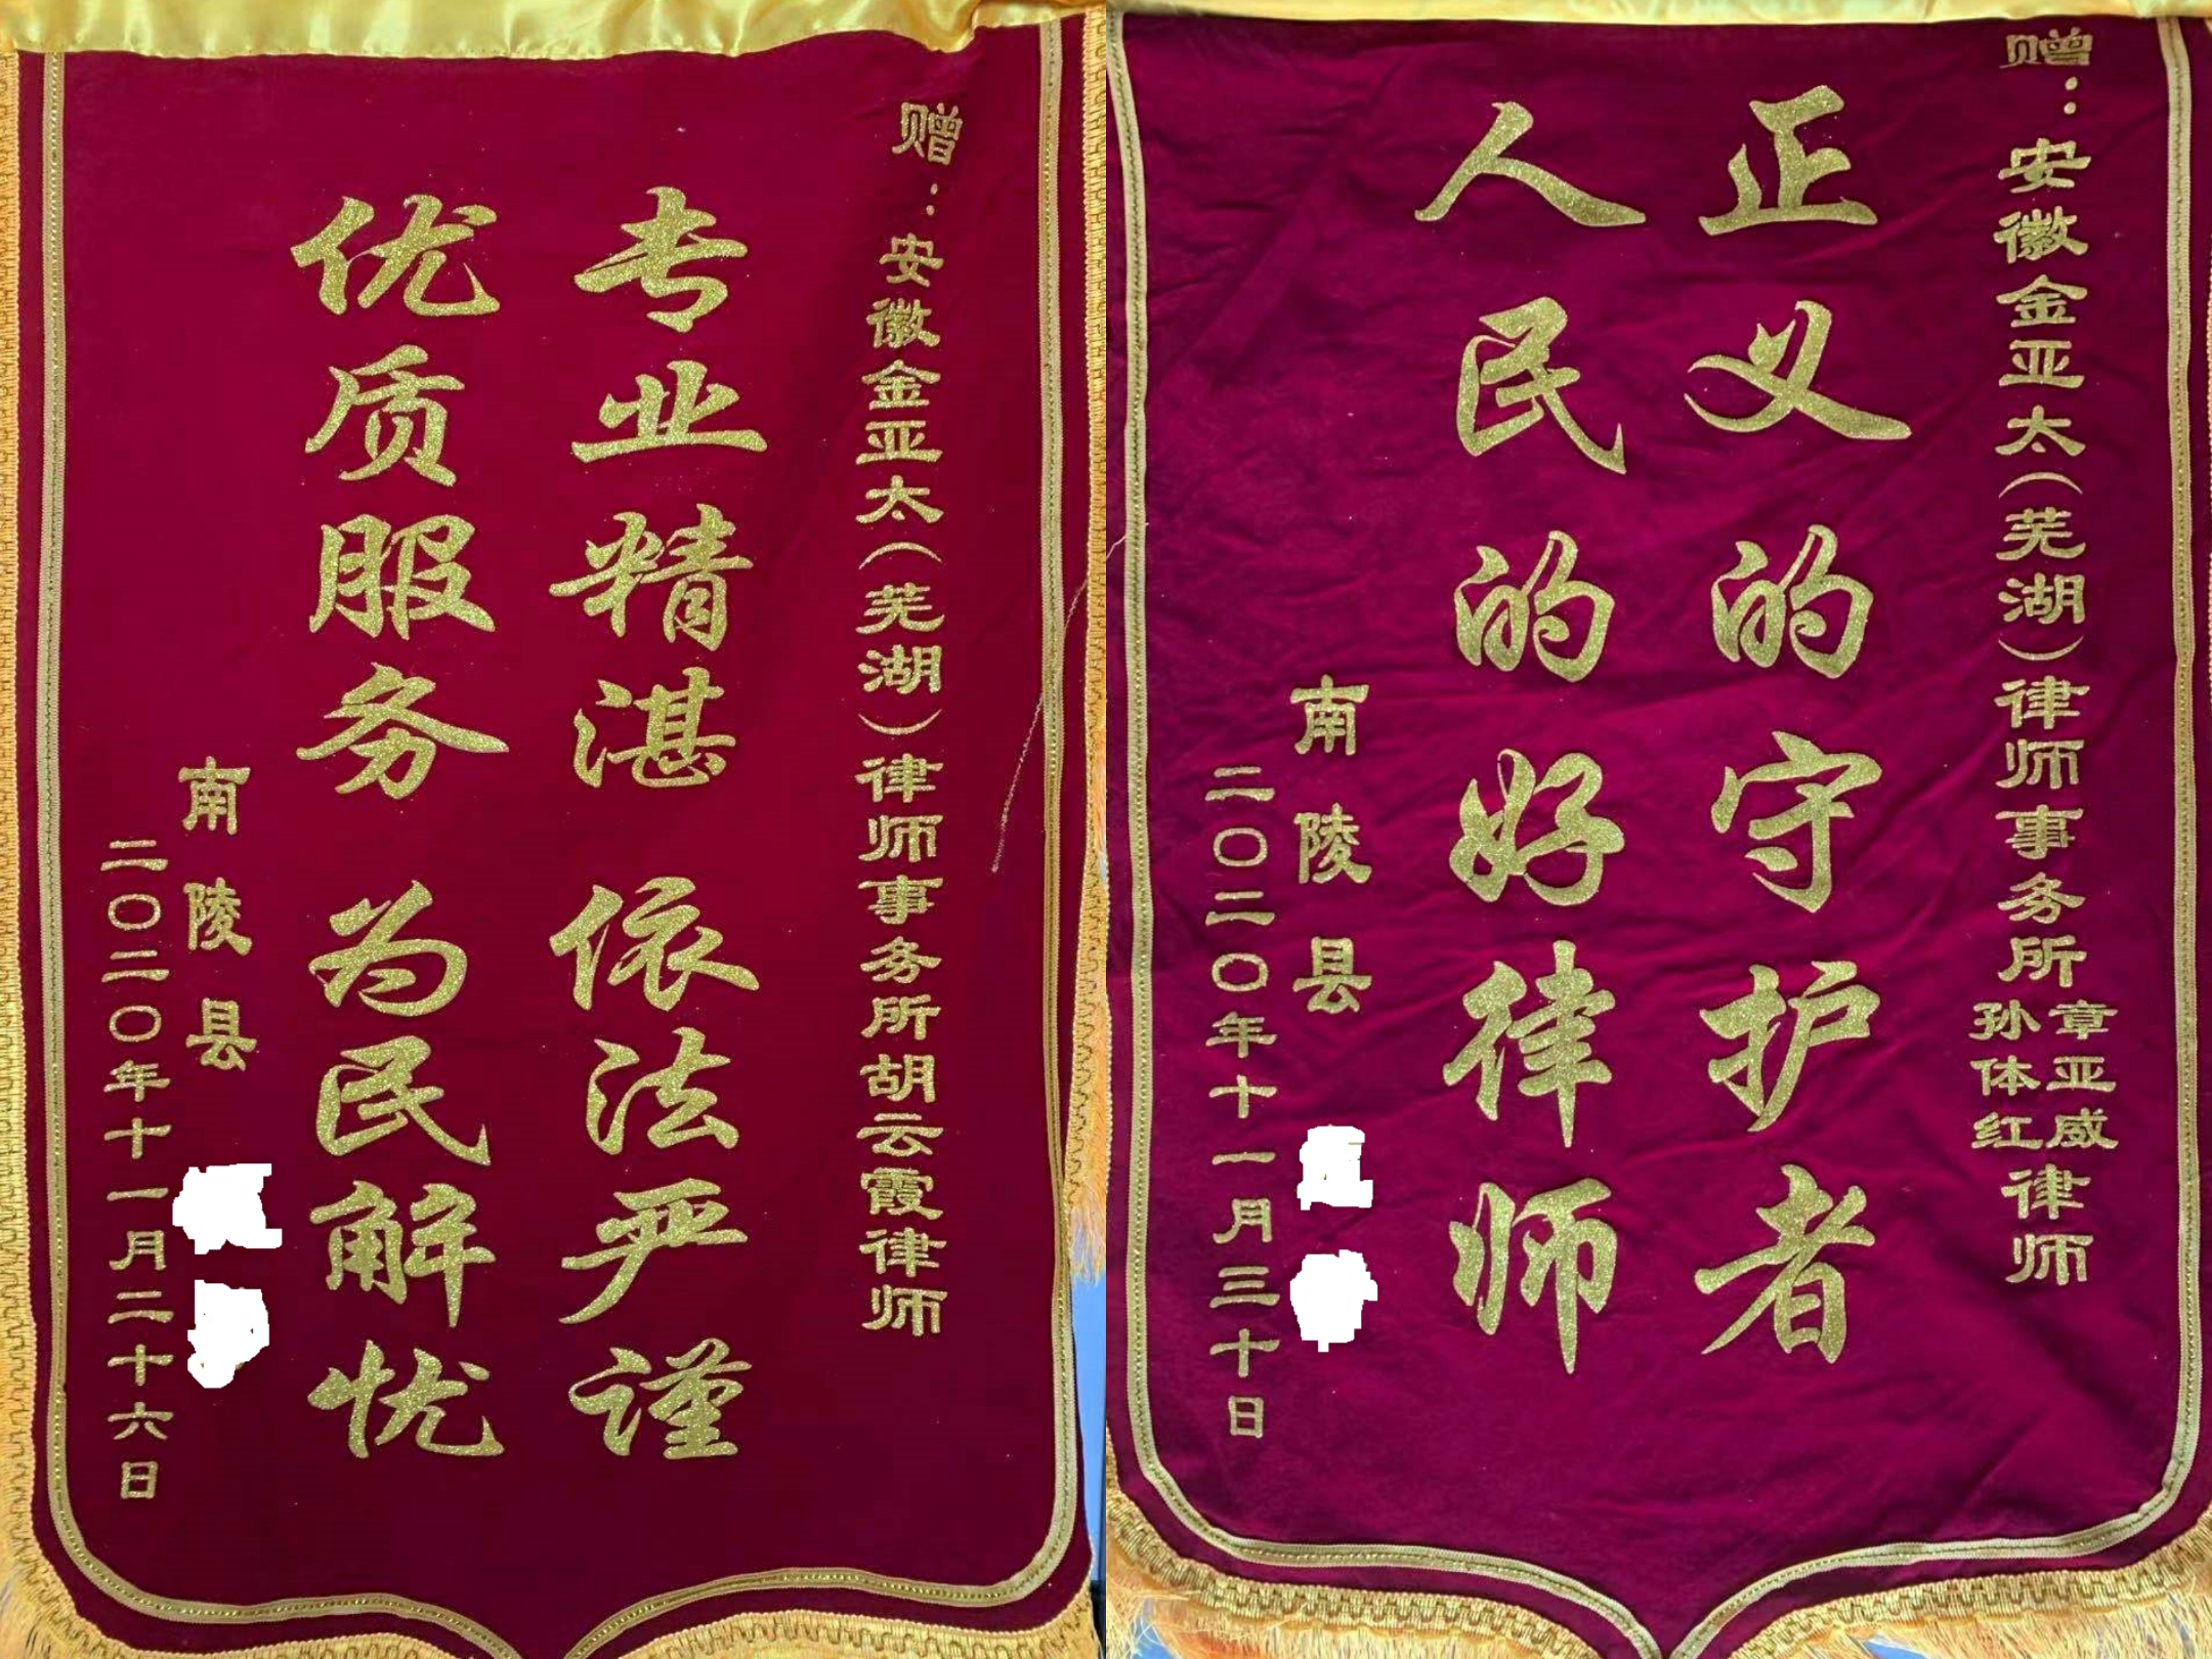 赠：安徽金亚太（芜湖）律师事务所胡云霞律师
专业精湛 依法严谨
优质服务 为民解忧
南陵县
二〇二〇年十一月二十六日
赠：安徽金亚太（芜湖）律师事务所章亚威孙体红律师
正义的守护者
人民的好律师
南陵县
二〇二〇年十一月三十日